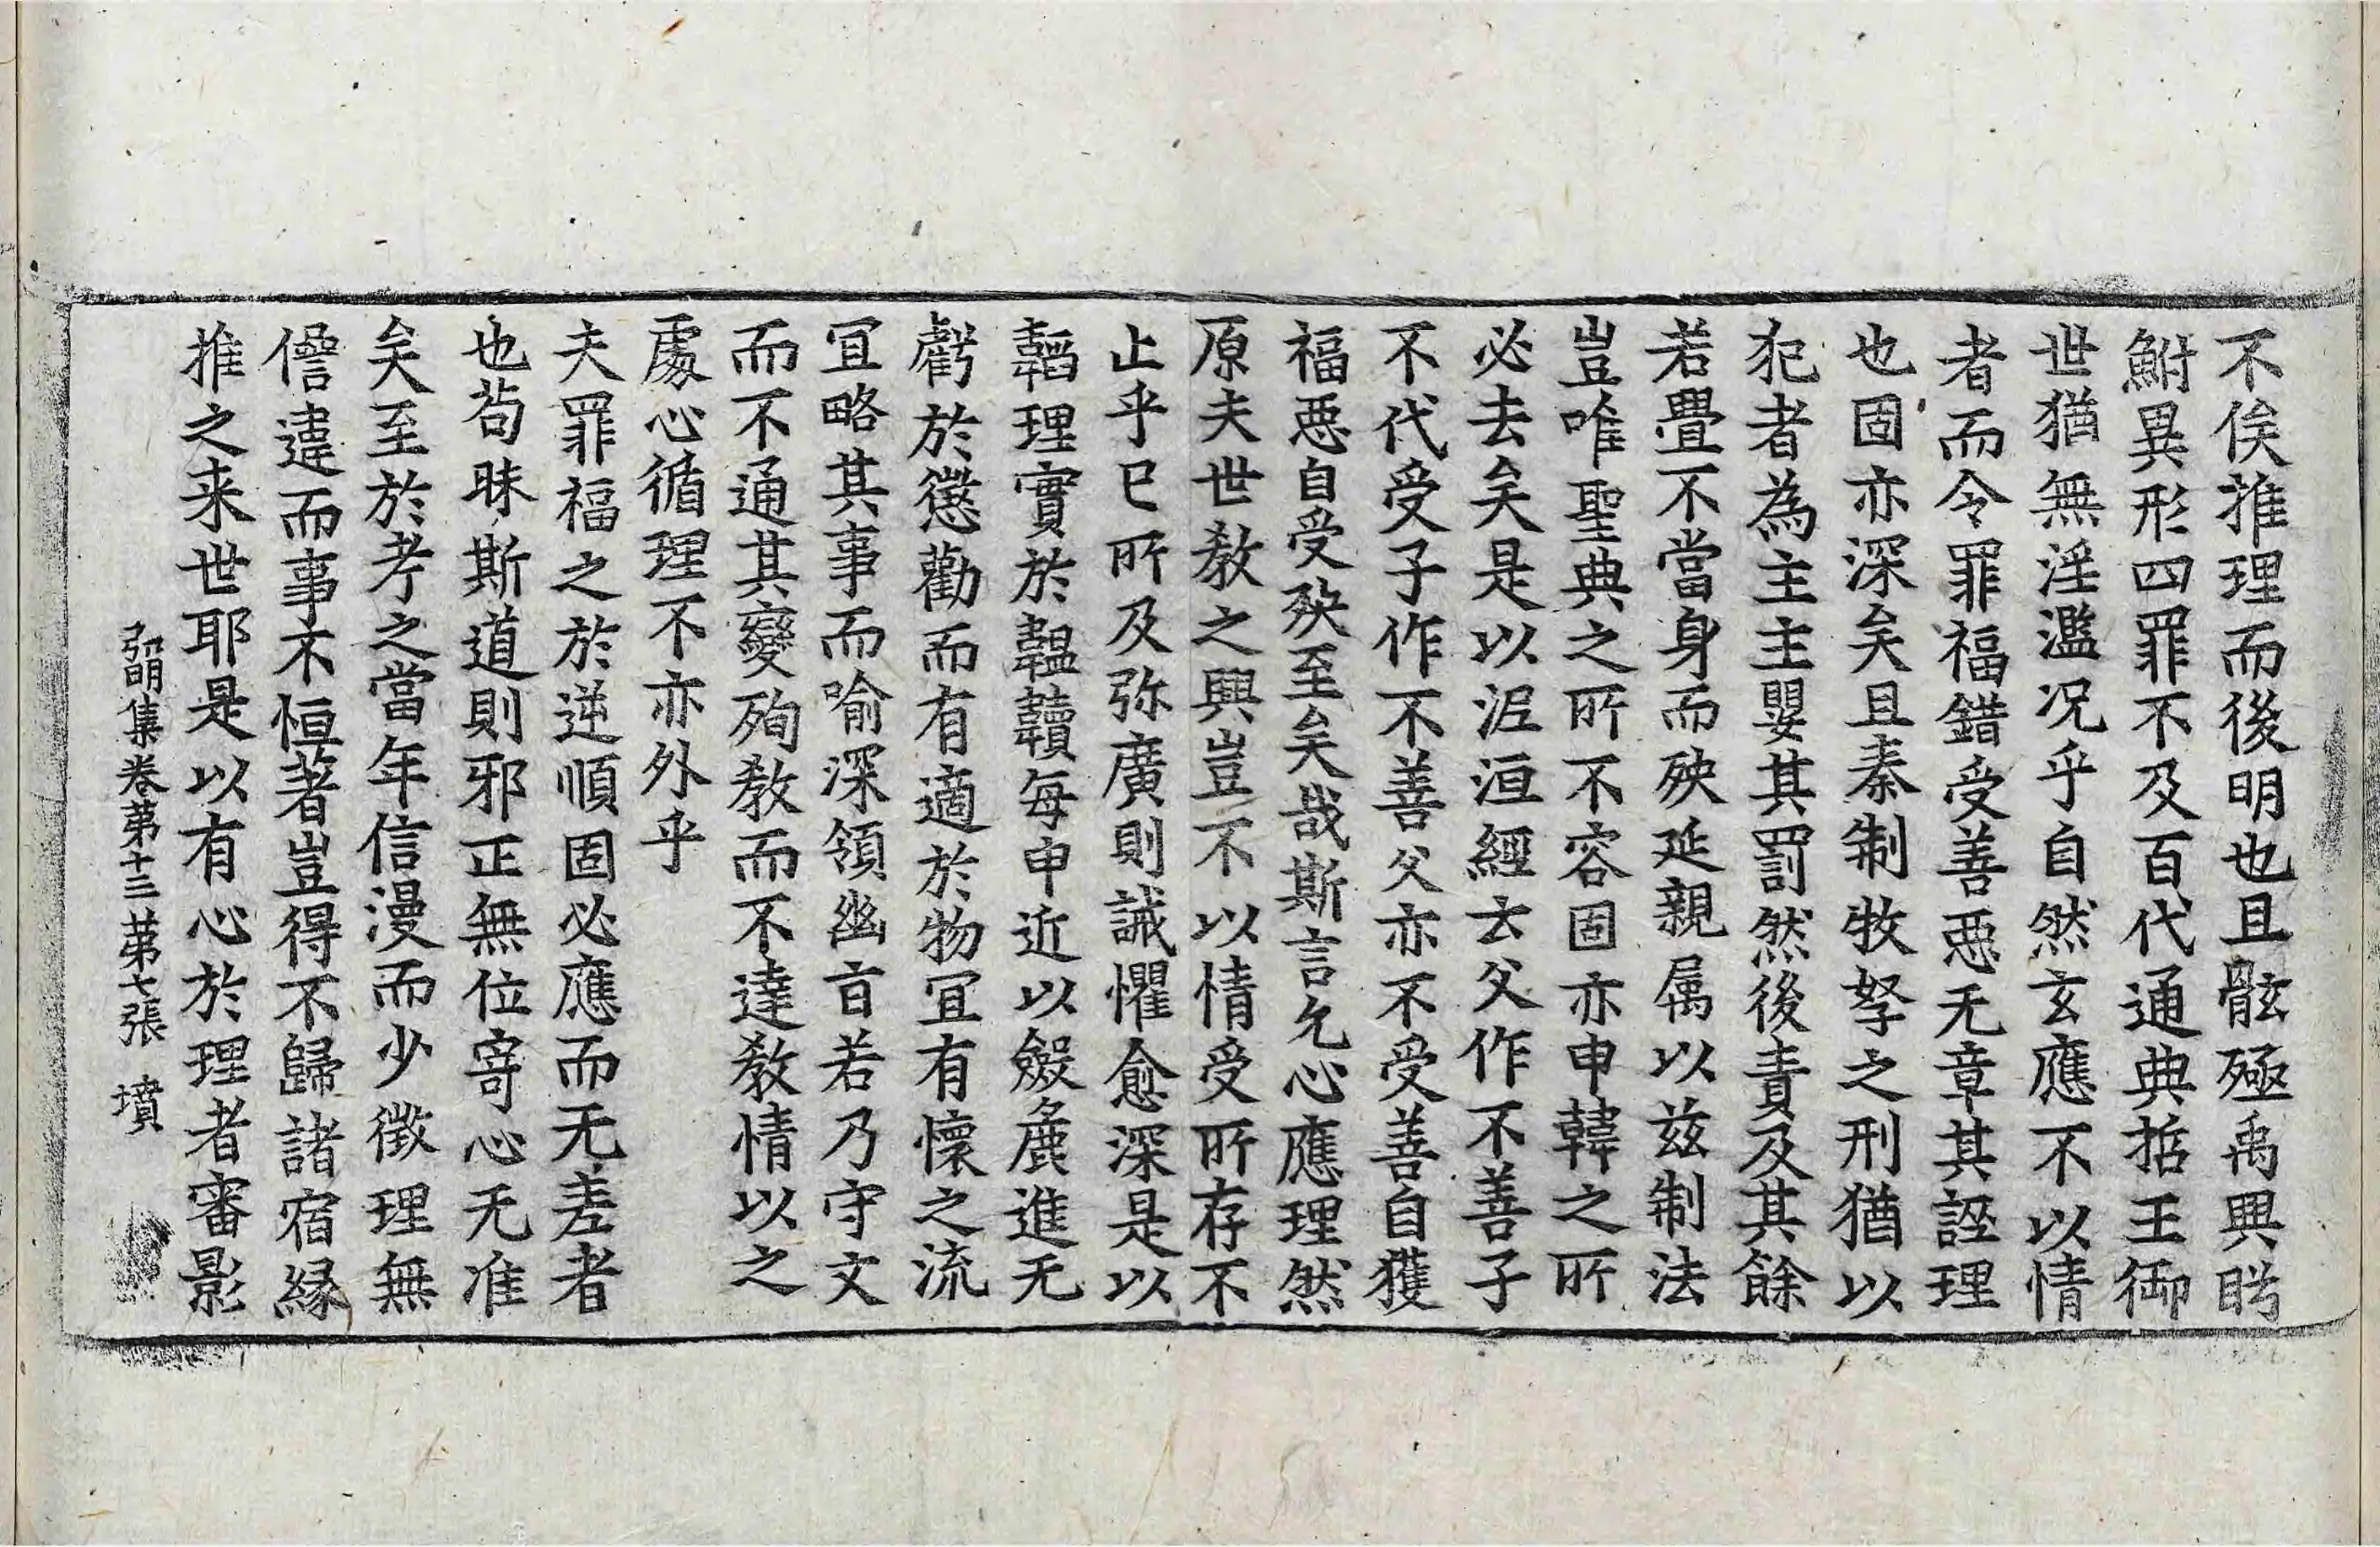 不俟推理而後明也且骸殛禹興眄
鮒異形四罪不及百代通典哲王御
世猶無淫濫況乎自然玄應不以情
者而令罪福錯受善惡无章其誣理
也固亦深矣且秦制牧孥之刑猶以
犯者為主主嬰其罰然後責及其餘
若舋不當身而殃延親屬以茲制法
豈唯聖典之所不容固亦申韓之所
必去矣是以泥洹經云父作不善子
不代受子作不善父亦不受善自獲
福惡自受殃至矣哉斯言允心應理然
原夫世教之興豈不以情受所存不
止乎已所及弥廣則誡懼愈深是以
韜理實於韞韥每申近以斂麁進无
虧於懲勸而有適於物冝有懷之流
冝略其事而喻深領幽旨若乃守文
而不通其變殉教而不達教情以之
處心循理不亦外乎
夫罪福之於逆順固必應而无差者
也苟昧斯道則邪正無位寄心无准
矣至於考之當年信漫而少徵理無
僭違而事不恒著豈得不歸諸宿緣
推之来世耶是以有心於理者審影
弘明集卷第十三 第七張 墳